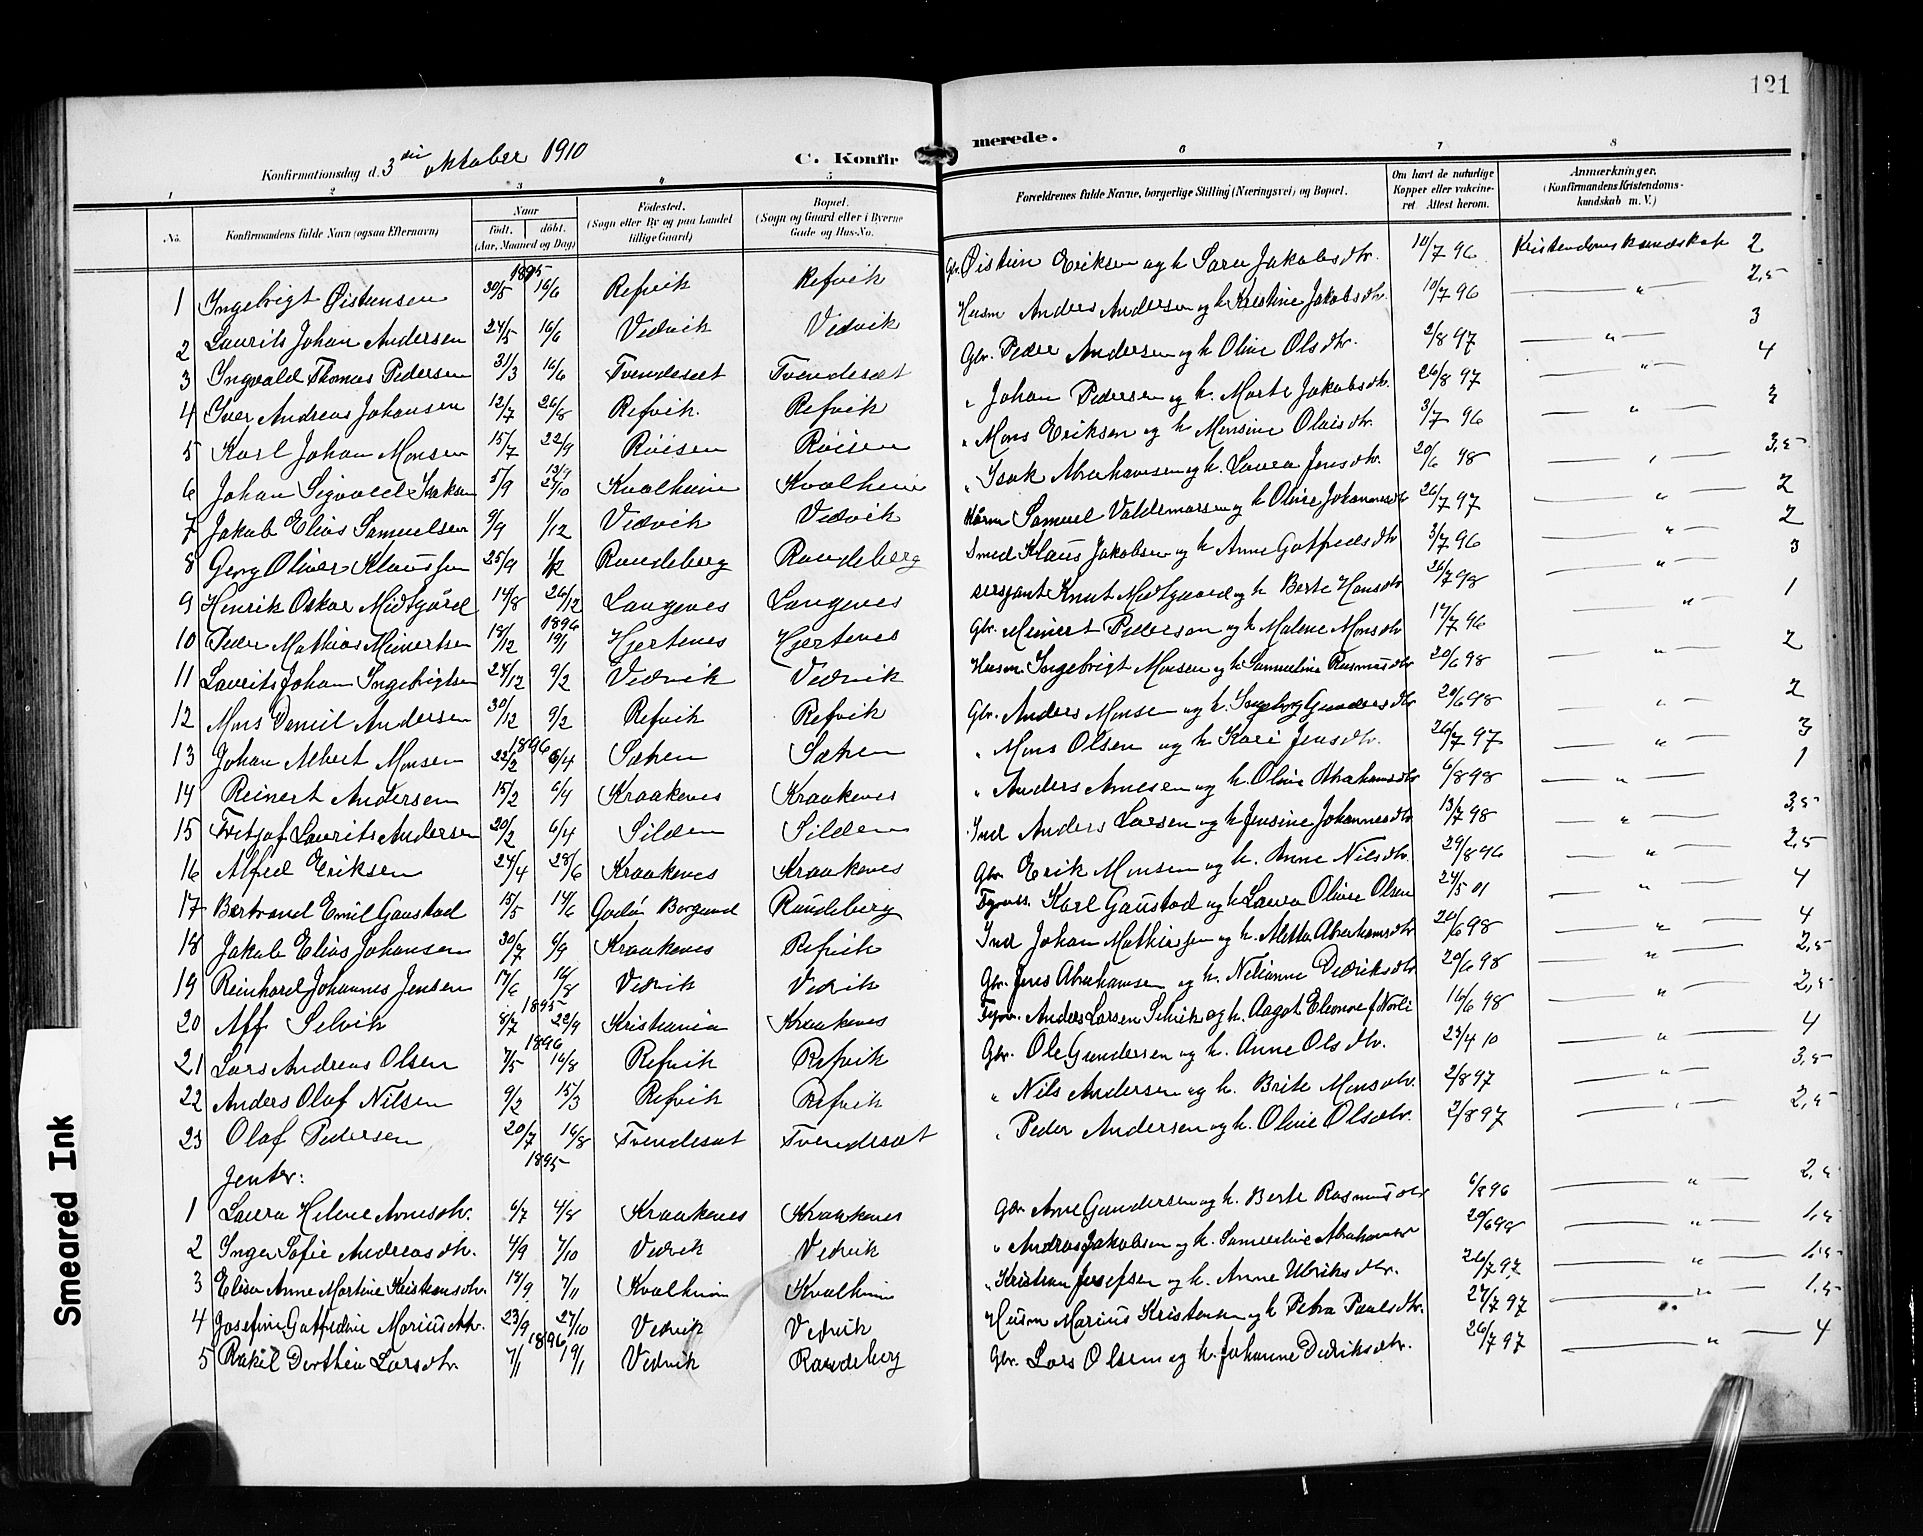 121
Konfirmationsdag d. 3 die oktober 1910
C. Konfirmerede.
1 2 3 4 5 6 7 8
No. Konfirmandens fulde Navn (ogsaa Efternavn) Naar født. døbt. (Aar, Maaned og Dag) Fødested. (Sogn eller By og paa Landet tillige Gaard) Bopæl. (Sogn og Gaard eller i Byerne Gade og Hus-No. Forældrenes fulde Navne, borgerlige Stilling (Næringsvei) og Bopæl. Om havt de naturlige Kopper eller vakcineret. Attest herom. Anmærkninger. (Konfirmandens Kristendomskundskab m. V.)
1895
1 Ingebrigt Øistensen 30/5 16/6 Refvik Refvik Gbr. Øistein Eriksen og h Sara Jakobsdtr. 10/7 96 Kristendomskundskab 2
2 Laurits Johan Andersen 24/5 16/6 Vedvik Vedvik Husm Anders Andersen og h Kristine Jakobsdtr. 10/7 96 — " — 2,5
3 Ingvald Thomas Pedersen 31/3 16/6 Tvendesæt Tvendesæt Gbr. Peder Andersen og h Oline Olsdtr. 2/8 97 — " — 3
4 Iver Andreas Johansen 12/7 26/8 Refvik Refvik " Johan Pedersen og h. Marte Jakobsdtr. 26/8 97 — " — 4
5 Karl Johan Monsen 15/7 22/9 Røisen Røisen " Mons Eriksen og h Monsine Olaisdtr. 3/7 96 — " — 3
6 Johan Sigvald Isaksen 5/9 13/9 27/10 Kvalheim Kvalheim " Isak Abrahamsen og h. Laura Jensdtr. 20/6 98 — " — 3,5
7 Jakob Elias Samuelsen 9/9 1/12 Vedvik Vedvik Kårm Samuel Valdemarsen og h Oline Johannesdtr 26/7 97 — " — 2
8 Georg Oliver Klaussen 25/9 1/12 Raudeberg Raudeberg Smed Klaus Jakobsen og h Anne Gotfredsdtr 3/7 96 — " — 2
9 Henrik Oskar Midtgård 14/8 26/12 Langenes Langenes sersjant Knut Midtgaard og h Berte Hansdtr 26/7 98 — " — 3
1896
10 Peder Mathias Meinertsen 18/12 19/1 Hjertenes Hjertenes Gbr. Meinert Pedersen og h Malene Monsdtr 17/7 96 — " — 1
11 Laurits Johan Ingebrigtsen 24/12 9/2 Vedvik Vedvik Husm Ingebrigt Monsen og h Samueline Rasmusdtr 20/6 98 — " — 2
12 Mons Daniel Andersen 30/12 9/2 Refvik Refvik Gbr. Anders Monsen og h. Ingeborg Gundersdtr 20/6 98 — " — 2
1896
13 Johan Albert Monsen 22/2 6/4 Sæten Sæten " Mons Olsen og h Kari Jensdtr. 26/7 97 — " — 3
14 Reinert Andersen 15/2 6/4 Kraakenes Kraakenes " Anders Arnesen og h. Oline Abrahamsdtr 6/8 98 — " — 1
15 Fritjof Laurits Andersen 20/2 6/4 Silden Silden Ind Anders Larsen og h Jensine Johannesdtr 13/7 98 — " — 3,5
16 Alfred Eriksen 24/4 28/6 Kraakenes Kraakenes Gbr. Erik Monsen og h. Anne Nilsdtr. 29/8 96 — " — 2,5
17 Bertrand Emil Gaustad 15/5 14/6 Godø Borgund Raudeberg Fyrvos. Karl Gaustad og h Laura Oline Olsen 24/5 01 — " — 4
18 Jakob Elias Johansen 30/7 6/9 Kraakenes Refvik Ind Johan Mathiassen og h. Mette Abrahamsdtr 20/6 98 — " — 4
19 Reinhard Johannes Jensen 17/6 16/8 Vedvik Vedvik Gbr. Jens Abrahamsen og h. Nilianne Didriksdtr 20/6 98 — " — 2,5
1895
20 Alf Selvik 8/7 22/9 Kristiania Kraakenes Fyrv. Anders Larsen Selvik og h. Aagot Eleonore f Norli 16/6 98 — " — 2,5
1896
21 Lars Andreas Olsen 7/5 16/8 Refvik Refvik Gbr. Ole Gundersen og h. Anne Olsdtr. 23/4 10 — " — 4
22 Anders Olaf Nilsen 9/2 15/3 Refvik Refvik " Nils Andersen og h. Brite Monsdtr. 2/8 97 — " — 3,5
23 Olaf Pedersen 20/7 16/8 Tvendesæt Tvendesæt " Peder Andersen og h. Oline Olsdtr. 2/8 97 — " — 2,5
Jenter: 1895
1 Laura Helene Arnesdtr. 6/7 4/8 Kraakenes Kraakenes Gbr. Arne Gundersen og h. Berte Rasmusdtr 6/8 96 — " — 2,5
2 Inger Sofie Andreasdtr. 4/9 7/10 Vedvik Vedvik " Andreas Jakobsen og h. Samueline Abrahamsdtr 20/6 98 — " — 1,5
3 Elisa Anne Martine Kristiansdtr. 18/9 7/11 Kvalheim Kvalheim " Kristian Josefsen og h. Anne Ulriksdtr. 26/7 97 — " — 1,5
4 Josefine Gotfredine Mariusdtr. 23/9 27/10 Vedvik Vedvik Husm Marius Kristensen og h Petra Paulsdtr. 27/7 97 — " — 1,5
1896
5 Rakel Dorthea Larsdtr. 7/1 19/1 Vedvik Raudeberg Gbr. Lars Olsen og h. Johanne Didriksdtr. 26/7 97 — " — 4
Smeared Ink